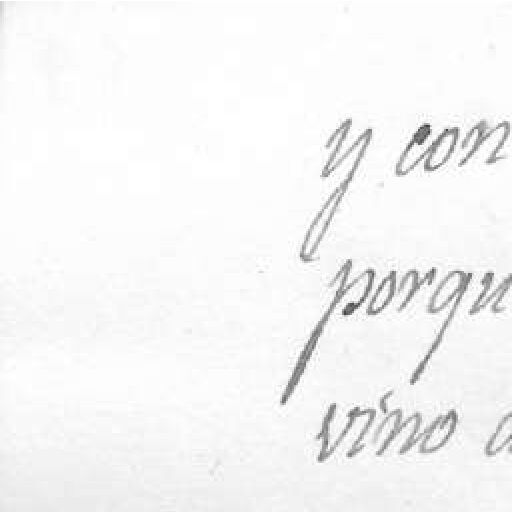 y con
porqu
vino